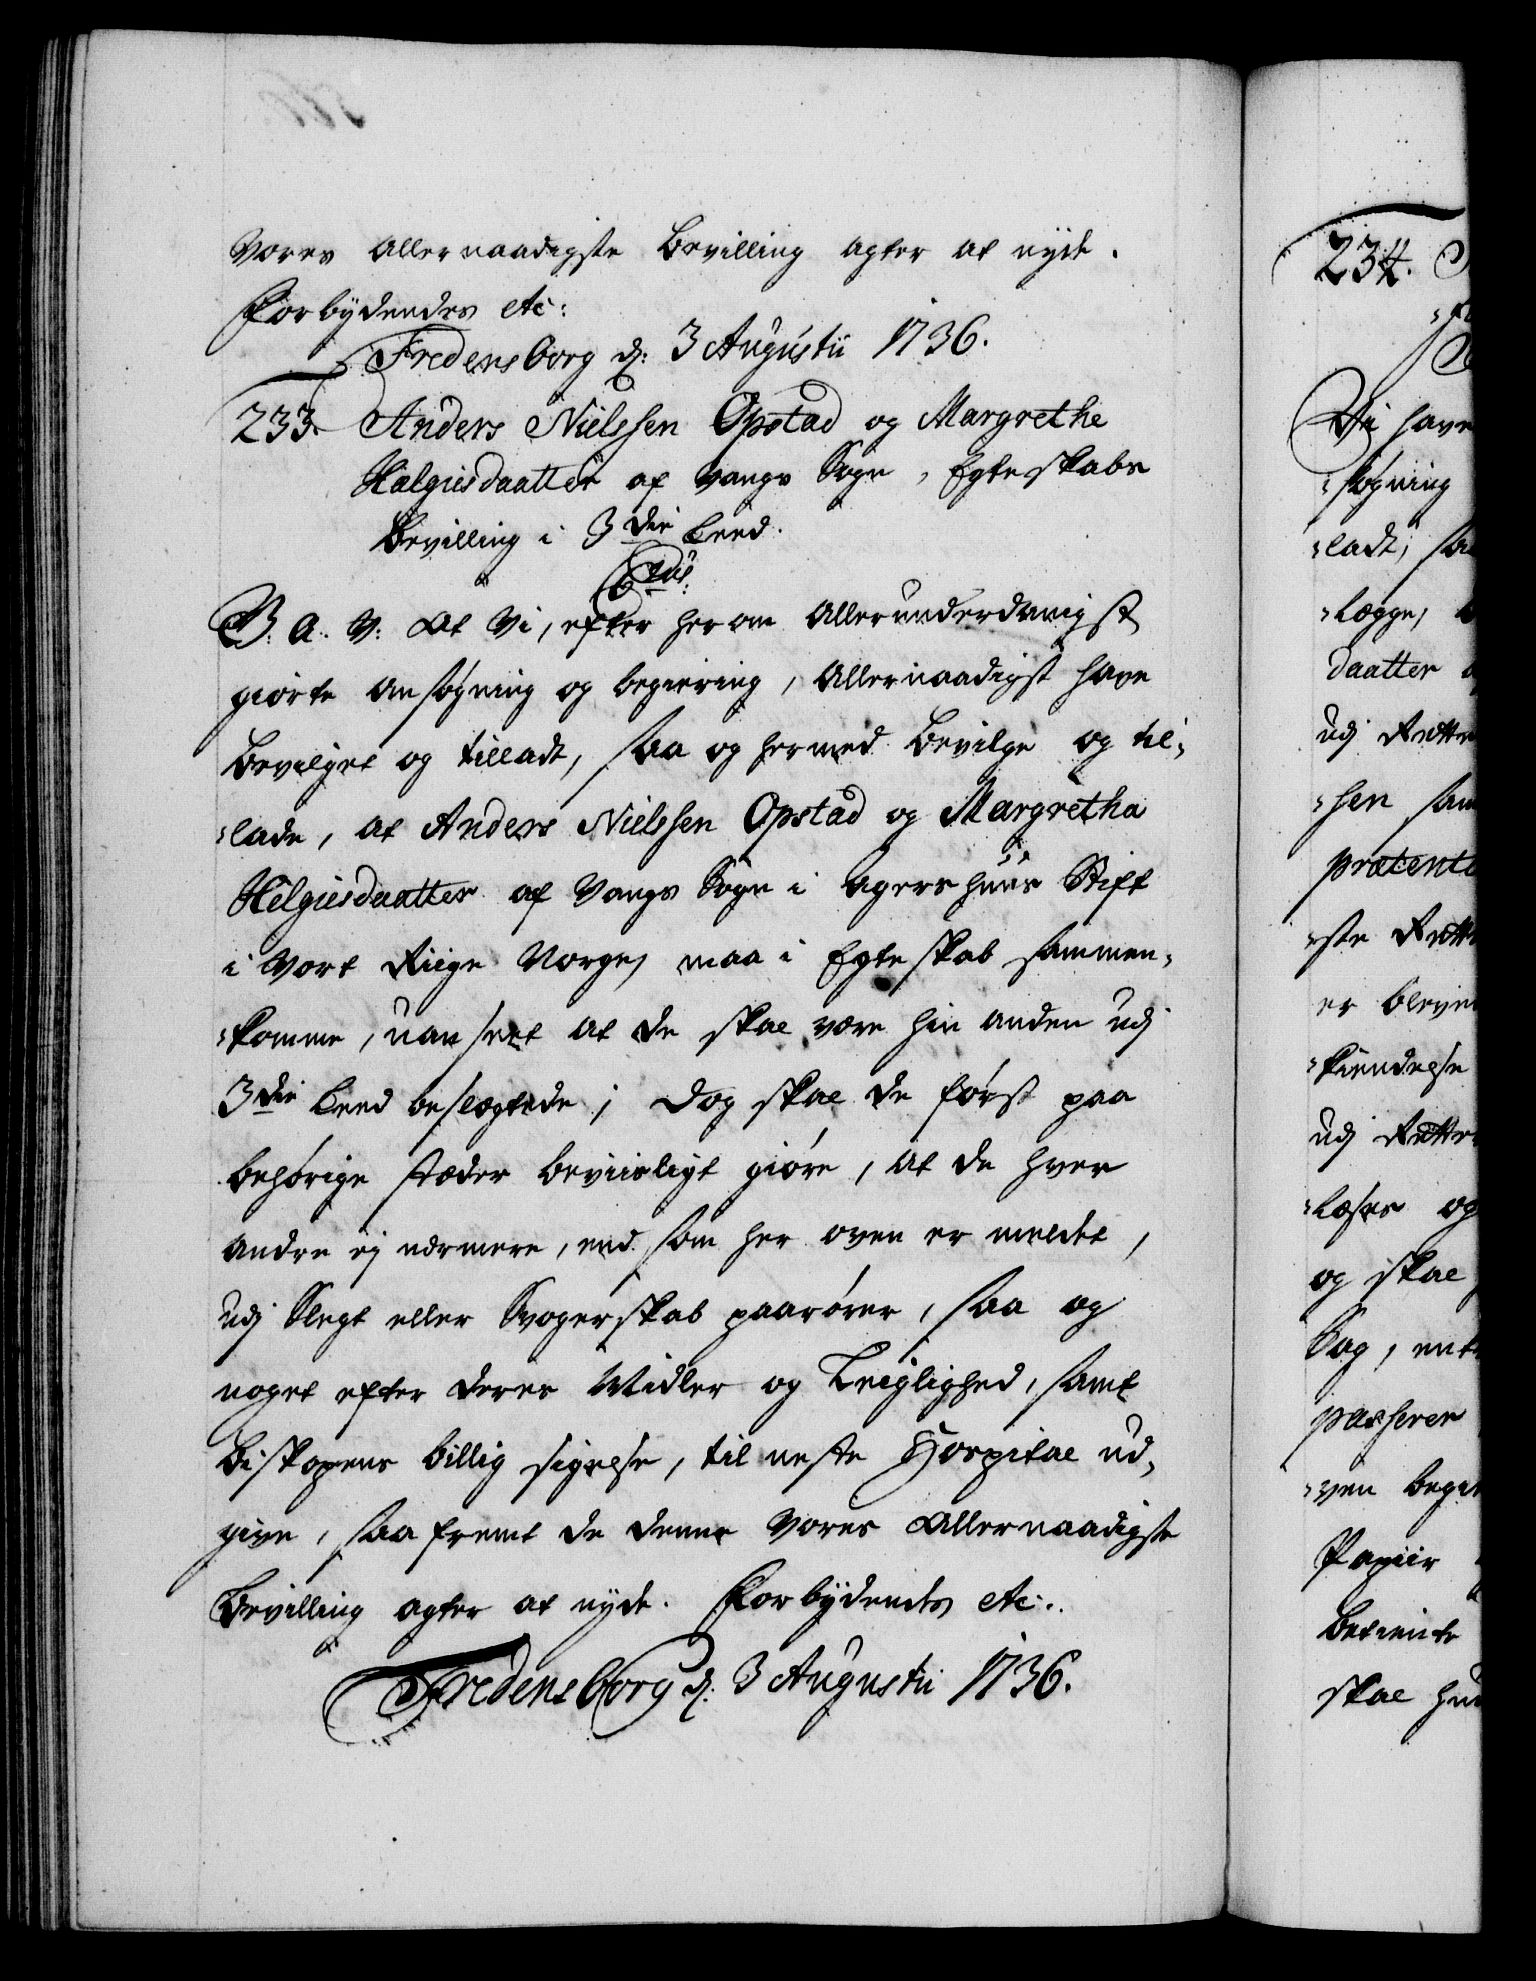 Vores Allernaadigste Bevilling agter at nyde.
Forbydendes etc:
Fredensborg d: 3 Augustii 1736.
233. Anders Nielssen Opstad og Margrethe
Halgiesdaatter af Vangs Sogn, Egteskabs
Bevilling i 3die Leed.
C 7bus:
G: A: V: At Vi, efter herom Allerunderdanigst
giorte Ansøgning og begiering, Allernaadigst have
bevilget og tilladt, saa og hermed bevilge og til-
-lade, at Anders Nielssen Opstad og Margretha
Helgiesdaatter af Vangs Sogn i Agershuus Stift
i Vort Riige Norge, maa i Egteskab sammen-
-komme, uanseet at de skal være hin anden udj
3die Leed beslægtede; Dog skal de først paa
behørige stæder beviisligt giøre, at de hver
andre ej nærmere, end som her oven er meldt,
udj Slegt eller Svogerskab paarører, saa og
noget efter deres Midler og Leiglighed, samt
Biskopens billig sigelse, til neste Hospital ud-
give, saafremt de denne Vores Allernaadigste
Bevilling agter at nyde. Forbydendes etc:
Fredensborg d: 3 Augustii 1736.
234.
Vi have
-søgning
-ladt, saa
-legge,
daatter
udj Rette
-sen sam
prætente
-ste Rette
er bleve
-kiendelse
udj Rette
-læses og
og skal
Sag, ent
passerer
-ven begie
Papiir
betiente
skal hu